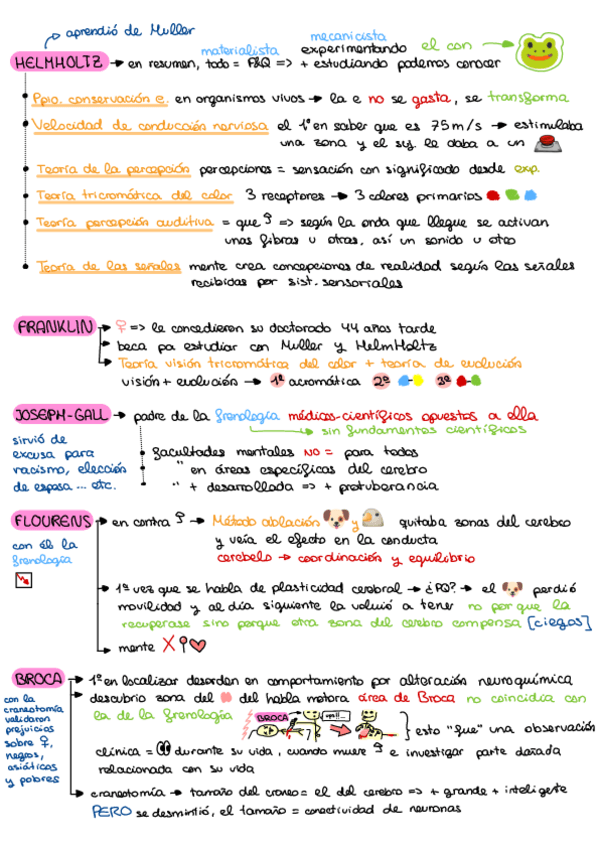 aprendió de Muller
materialista mecanicista
HELMHOLTZ → en resumen, todo = F&Q => → experimentando el con
+ estudiando podemos conocer
Ppio. conservación e. en organismos vivos → la e no se gasta, se transforma
Velocidad de conducción nerviosa el 1º en saber que es 75m/s → estimulaba
una zona y el suj. le daba a un
Teoría de la percepción percepciones = sensación con significado desde exp.
Teoría tricromática del color 3 receptores → 3 colores primarios
Teoría percepción auditiva = que ♀ => según la onda que llegue se activan
unas fibras u otras, así un sonido u otro
Teoría de las señales mente crea concepciones de realidad según las señales
recibidas por sist. sensoriales
FRANKLIN → ♀ => le concedieron su doctorado 44 años tarde
beca pa estudiar con Muller y HelmHoltz
Teoría visión tricromática del color + teoría de evolución
visión + evolución → 1ª acromática 2ª 3ª
JOSEPH-GALL → padre de la frenología médicos-científicos opuestos a ella
→ sin fundamentos científicos
sirvió de
excusa para
racismo, elección
de esposa ... etc.
facultades mentales NO = para todos
" en áreas específicas del cerebro
" + desarrollada => + protuberancia
FLOURENS → en contra ♀ → Método ablación y quitaba zonas del cerebro
y veía el efecto en la conducta
cerebelo → coordinación y equilibrio
con él la
frenología
1ª vez que se habla de plasticidad cerebral → ¿PQ? → el perdió
movilidad y al día siguiente la volvió a tener no porque la
recuperase sino porque otra zona del cerebro compensa [ciegos]
mente X
BROCA → 1º en localizar desorden en comportamiento por alteración neuroquímica
descubrio zona del del habla motora área de Broca no coincidia con
la de la frenología
BROCA
esto "fue" una observación
clínica = durante su vida, cuando muere ♀ e investigar parte dañada
relacionada con su vida
con la
craneotomía
validaron
prejuicios
sobre ♀,
negros,
asiáticos
y pobres
craneotomía → tamaño del craneo = el del cerebro => + grande + inteligente
PERO se desmintió, el tamaño = conectividad de neuronas